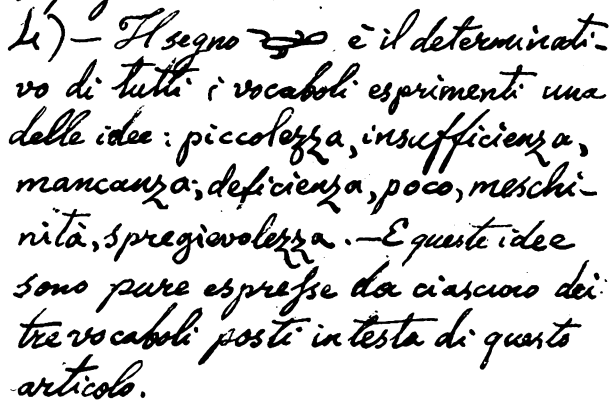 4) — Il segno è il determinati-
vo di tutti i vocaboli esprimenti una
delle idee: piccolezza, insufficienza,
mancanza, deficienza, poco, meschi-
nità, spregievolezza. — E queste idee
sono pure espresse da ciascuno dei
tre vocaboli posti in testa di questo
articolo.